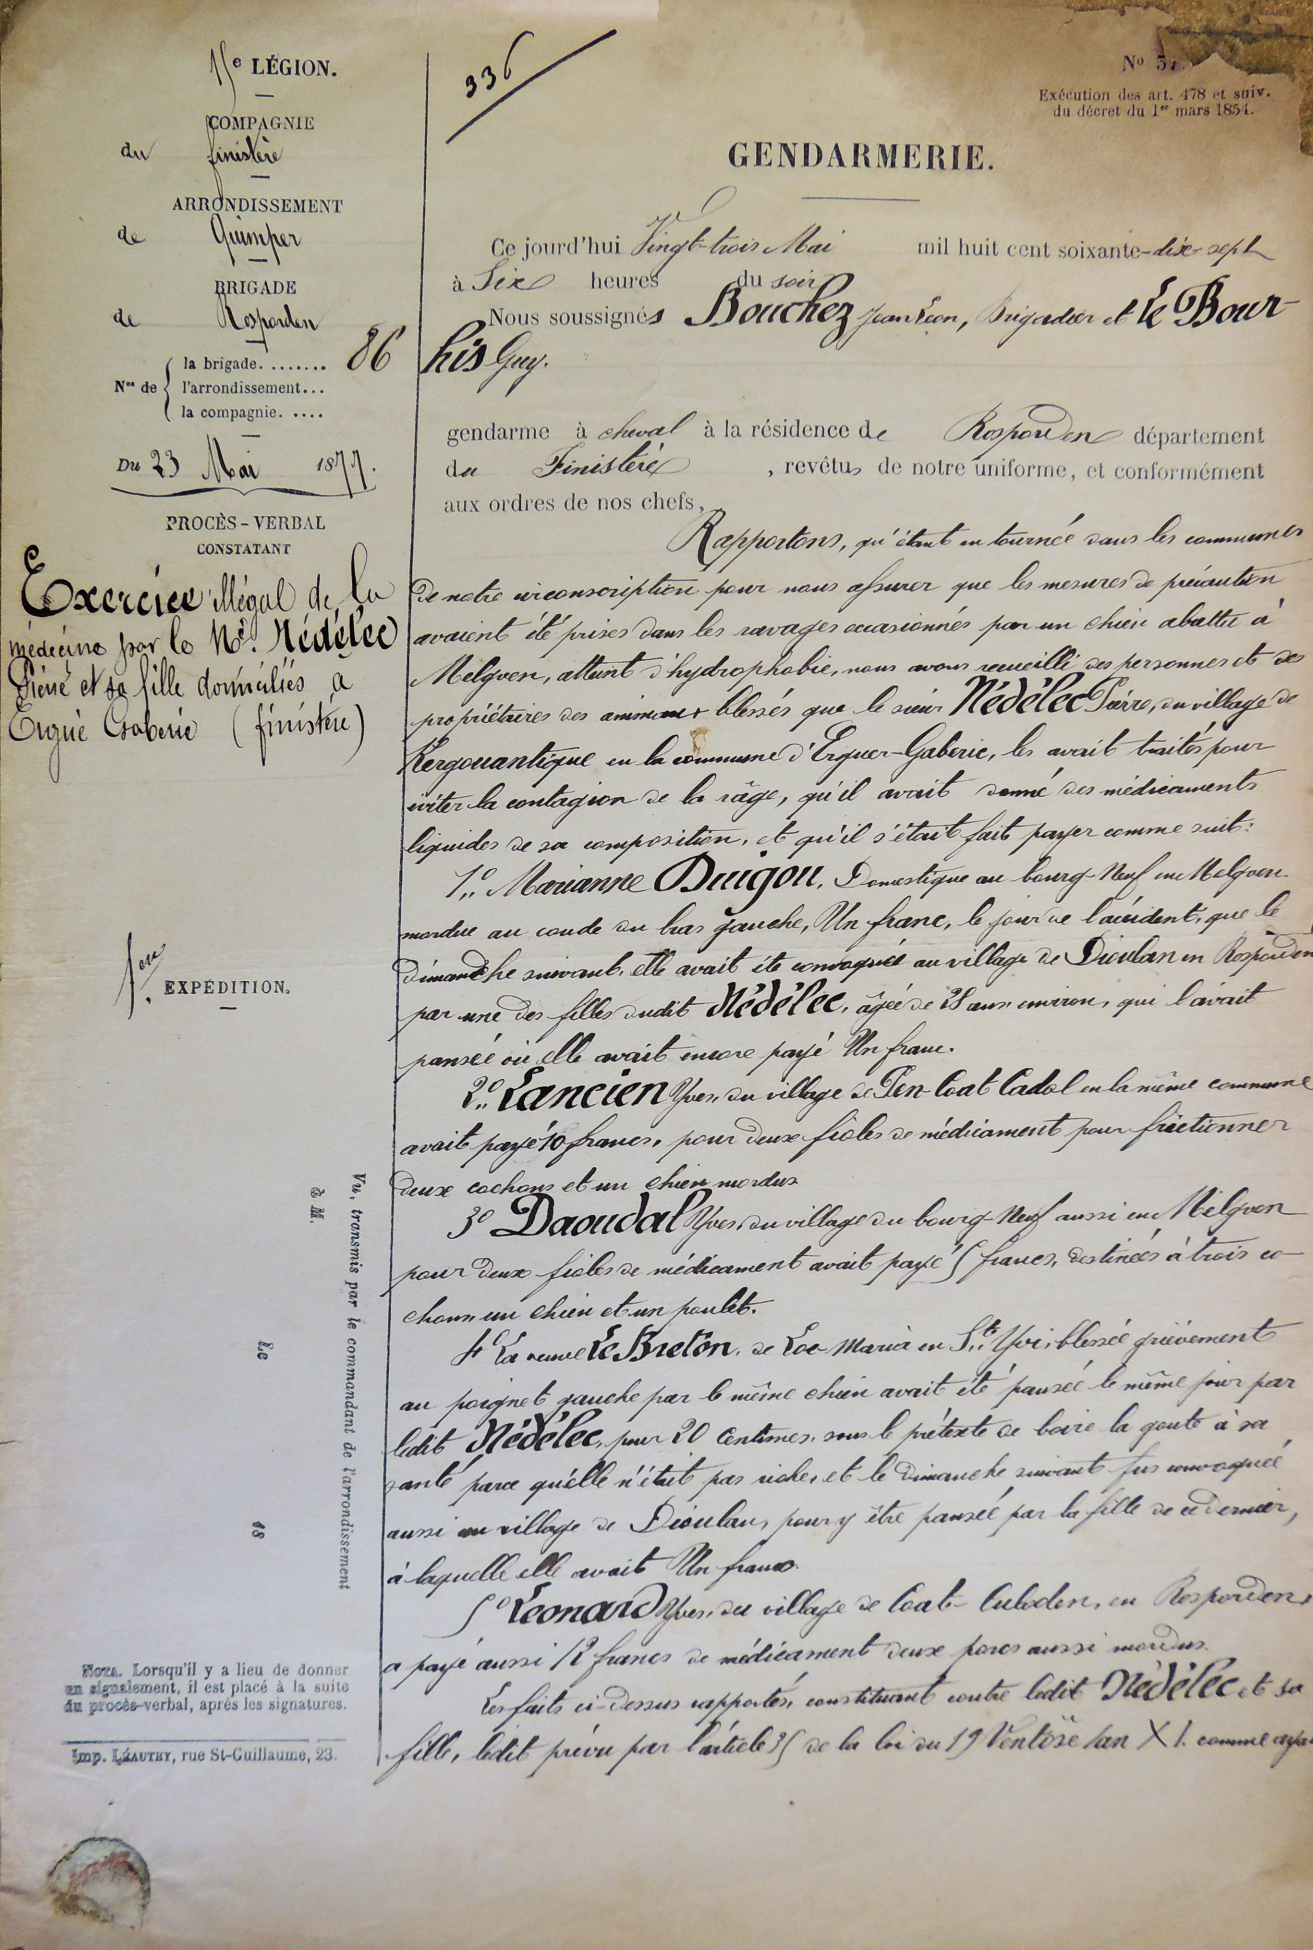 11e LÉGION.
COMPAGNIE
du finistère
ARRONDISSEMENT
de Quimper
BRIGADE
de Rosporden
Nos de
la brigade........ 86
l'arrondissement...
la compagnie.....
Du 23 Mai 1877.
PROCÈS-VERBAL
CONSTATANT
Exercice illégal de la
médecine par le Né. Nédélec
Pierre et sa fille domiciliés à
Ergué Gabéric (finistère)
1ère
EXPÉDITION.
Vu, transmis par le commandant de l'arrondissement
à M.
Le
18
NOTA. Lorsqu'il y a lieu de donner
un signalement, il est placé à la suite
du procès-verbal, après les signatures.
Imp. LÉAUTEY, rue St-Guillaume, 23.
336
No
Exécution des art. 478 et suiv.
du décret du 1er mars 1854.
GENDARMERIE.
Ce jourd'hui Vingt-trois Mai mil huit cent soixante-dix-sept
à Six heures du soir
Nous soussignés Bouchez Jean Léon, Brigadier et Le Bour-
his Guy.
gendarme à cheval à la résidence de Rosporden département
du Finistère, revêtus de notre uniforme, et conformément
aux ordres de nos chefs,
Rapportons, qu'étant en tournée dans les communes
de notre circonscription pour nous assurer que les mesures de précaution
avaient été prises dans les ravages occasionnés par un chien abattu à
Melgven, atteint d'hydrophobie, nous avons recueilli des personnes et des
propriétaires des animaux blessés que le sieur Nédélec Pierre, du village de
Kergouantique en la commune d'Erguer-Gabéric, les avait traités pour
éviter la contagion de la râge, qu'il avait donné des médicaments
liquides de sa composition, et qu'il s'était fait payer comme suit:
1o,, Marianne Duigou, Domestique au bourg-Neuf en Melgven
mordue au coude du bras gauche, Un franc, le jour de l'accident, que le
dimanche suivant, elle avait été convoquée au village de Dioulan en Rosporden
par une des filles dudit Nédélec, âgée de 28 ans environ, qui l'avait
pansée où elle avait encore payé Un franc.
2o,, Lancien Yves, du village de Pen-Coat Cadol en la même commune
avait payé 10 francs, pour deux fioles de médicament pour frictionner
deux cochons et un chien mordus
3o Daoudal Yves, du village du bourg-Neuf aussi en Melgven
pour deux fioles de médicament avait payé 5 francs, destinées à trois co-
chons un chien et un poulet.
4o La veuve Le Breton, de Loc-Maria en St,, Yvi, blessée grièvement
au poignet gauche par le même chien avait été pansée le même jour par
ledit Nédélec, pour 20 Centimes, sous le prétexte de boire la goute à sa
santé parce qu'elle n'était pas riche, et le dimanche suivant fus convoquée
aussi au village de Dioulan, pour y être pansée par la fille de ce dernier,
à laquelle elle avait Un franc.
5o Léonard Yves, du village de Coat-Culoden, en Rosporden,
a payé aussi 12 francs de médicament deux porcs aussi mordus.
Les faits ci-dessus rapportés, constituant contre ledit Nédélec et sa
fille, ledit prévu par l'article 35 de la loi du 19 Ventôse l'an XI. comme ayant